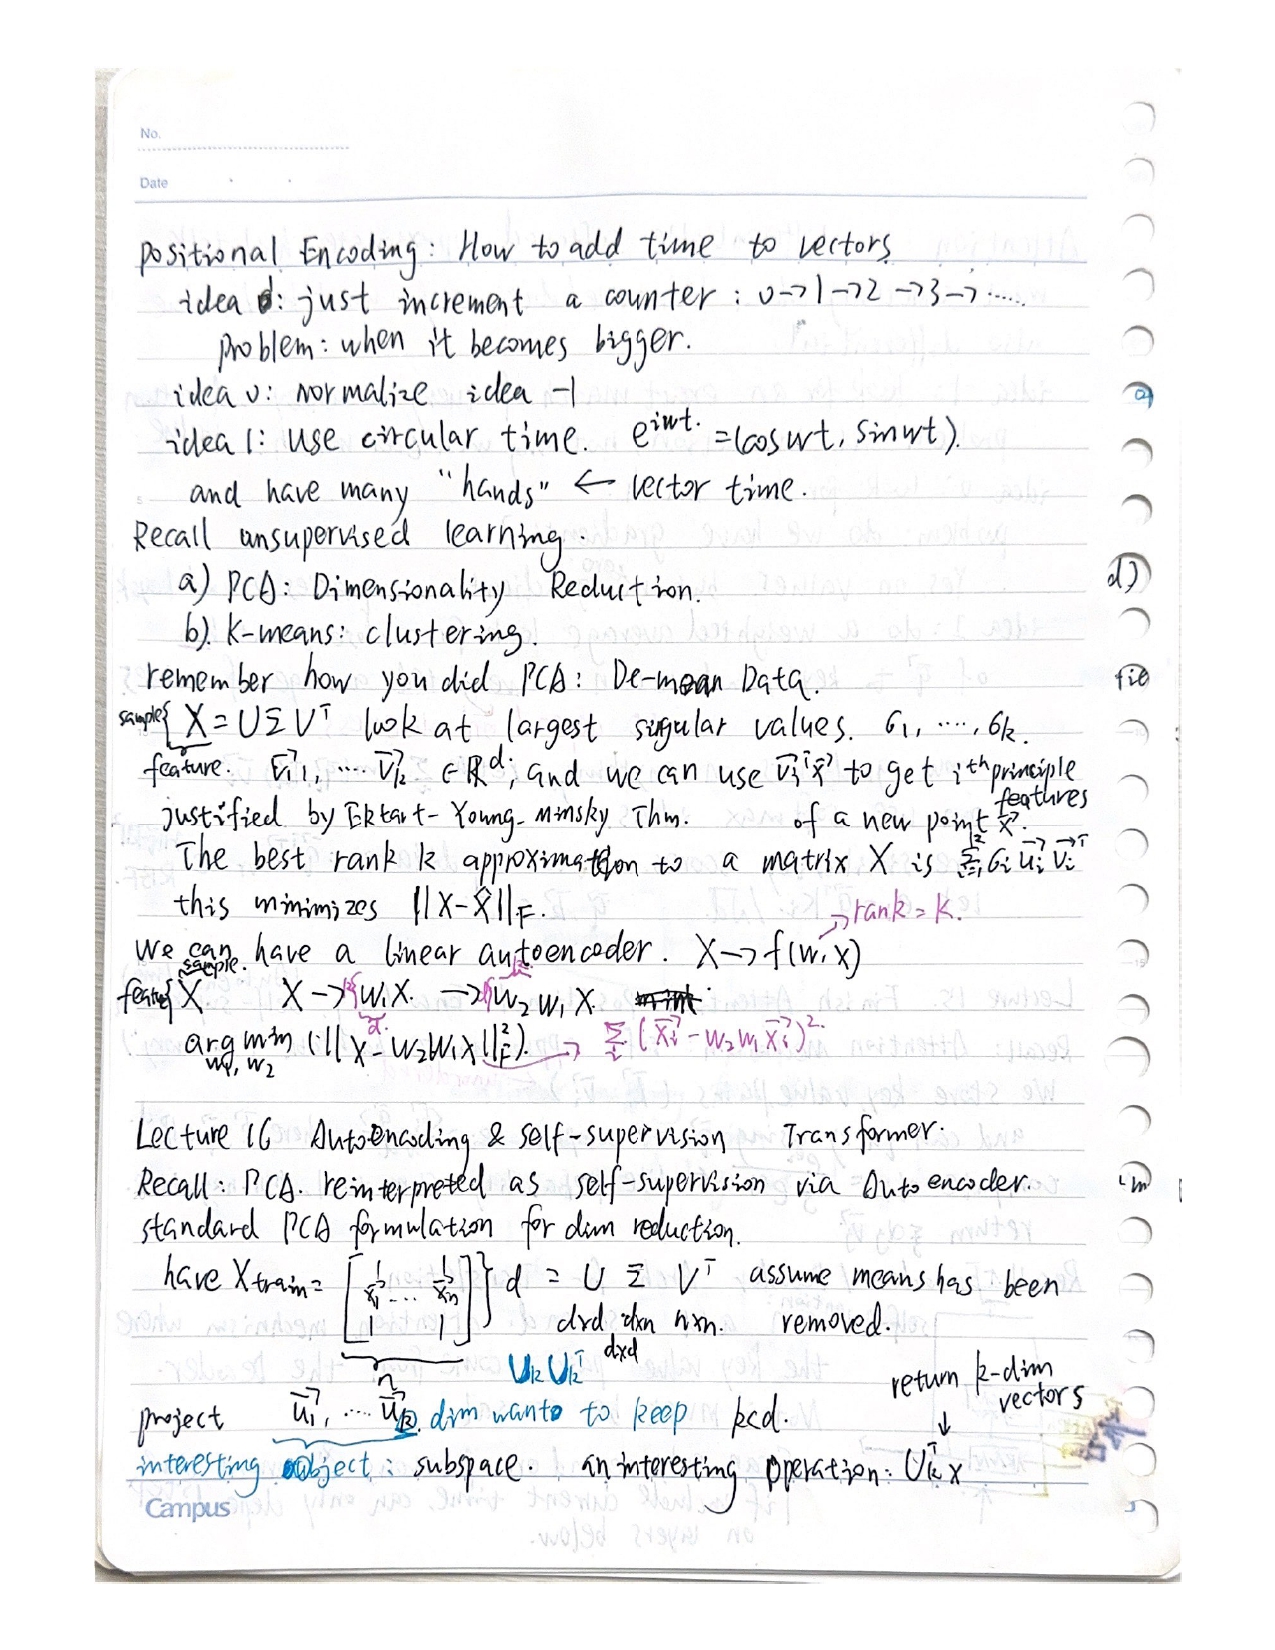 No.
Date
Positional Encoding: How to add time to vectors
idea : just increment a counter : 0→1→2→3→.....
problem: when it becomes bigger.
idea 0: normalize idea -1
idea 1: use circular time. e^{iwt} = (cos wt, sin wt).
and have many "hands" ← vector time.
Recall unsupervised learning.
a) PCA: Dimensionality Reduction.
b). K-means: clustering.
remember how you did PCA: De-mean Data.
sample{ X = UΣV^T look at largest singular values. σ1, ...., σk.
feature. v⃗1, .... v⃗k ∈ R^d, and we can use v⃗i^T x⃗ to get ith principle features
justified by Ektart-Young-Minsky Thm. of a new point x⃗.
The best rank k approximation to a matrix X is Σ σi u⃗i v⃗i^T
this minimizes ||X-X̂||F. → rank = k.
we can have a linear autoencoder. X → f(w, x)
sample.
feature{ X X → k{ W1 X. → W2 W1 X.
d.
arg min w1, w2 ( || X - W2W1X ||²F ). → Σi (x⃗i - w2w1 x⃗i)².
Lecture 16 Autoencoding & self-supervision Transformer.
Recall: PCA. reinterpreted as self-supervision via Autoencoder.
standard PCA formulation for dim reduction.
have Xtrain = [ x⃗1 ... x⃗n ] } d = U Σ V^T assume means has been
dxd dxn nxn. removed.
n UkUk^T dxd return k-dim vectors
project u⃗1, ... u⃗k. dim want to keep k<d. ↓
interesting object: subspace. an interesting operation: Uk^T x
Campus